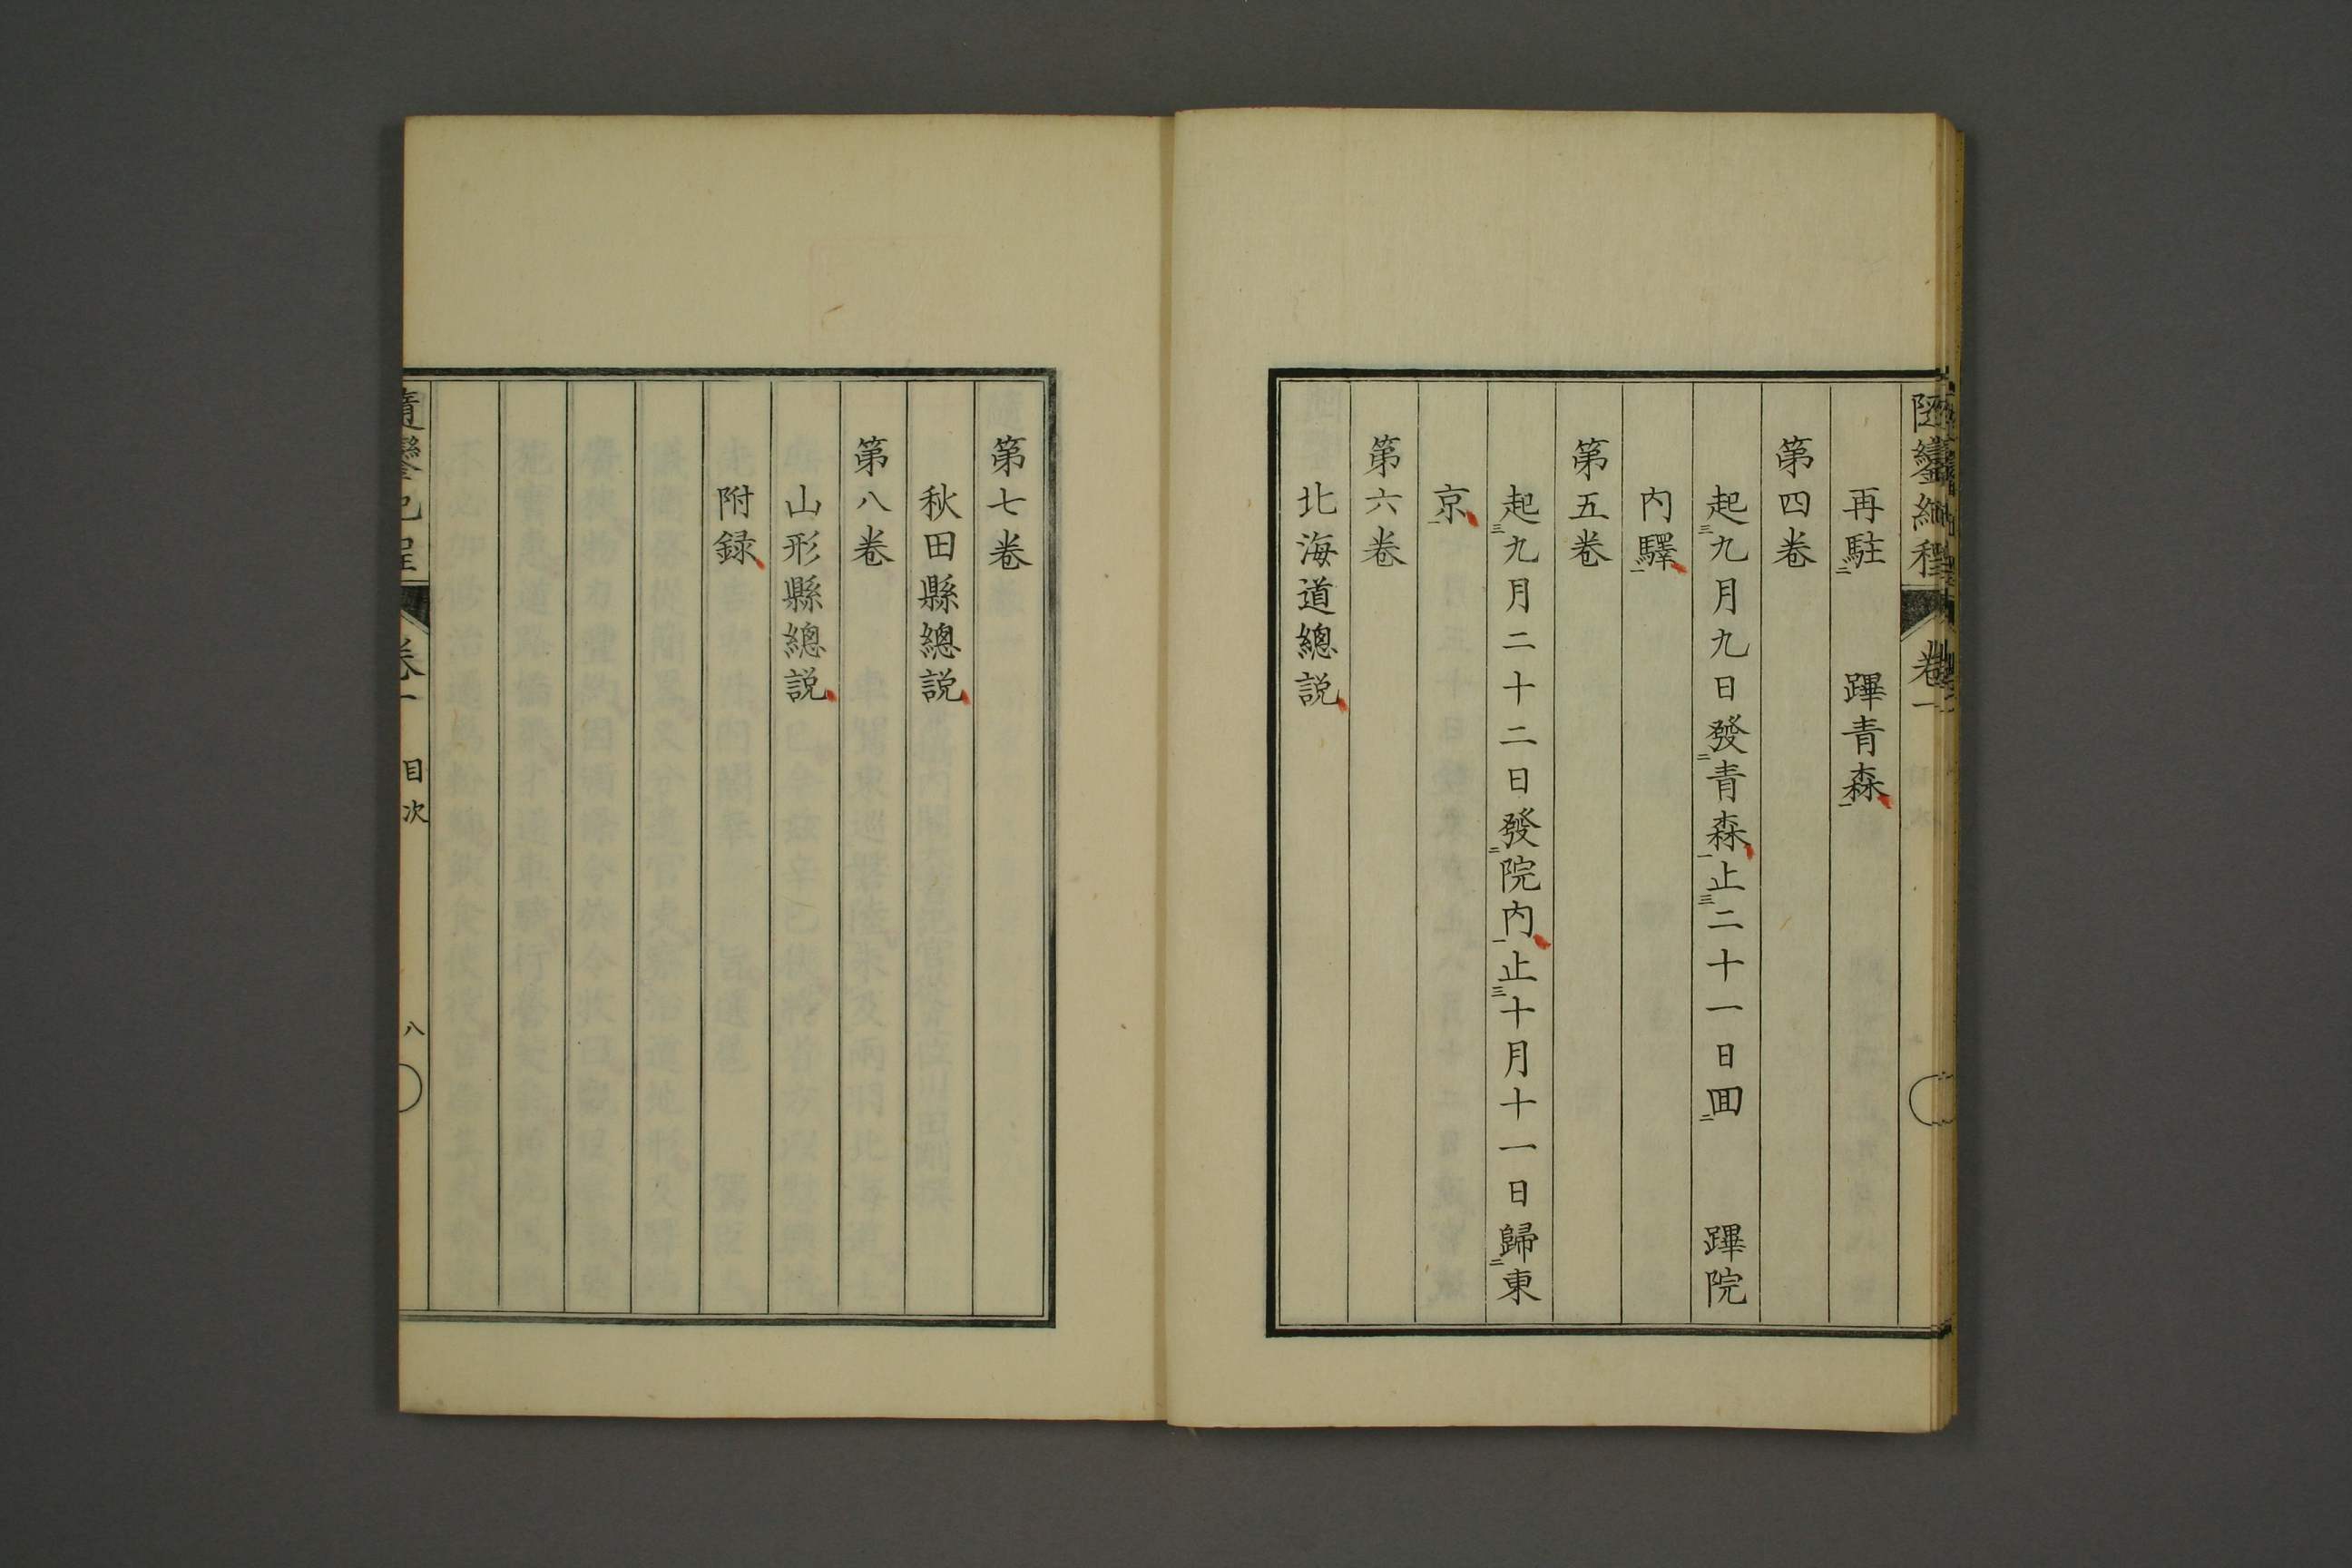 再駐二　蹕青森一
第四卷
起三九月九日發二青森一止三二十一日囬二　蹕院
內驛一
第五卷
起三九月二十二日發二院內一止三十月十一日歸二東
京一
第六卷
北海道總説
第七卷
秋田縣總説
第八卷
山形縣總説
附録
隨鑾紀程
卷一
目次
八